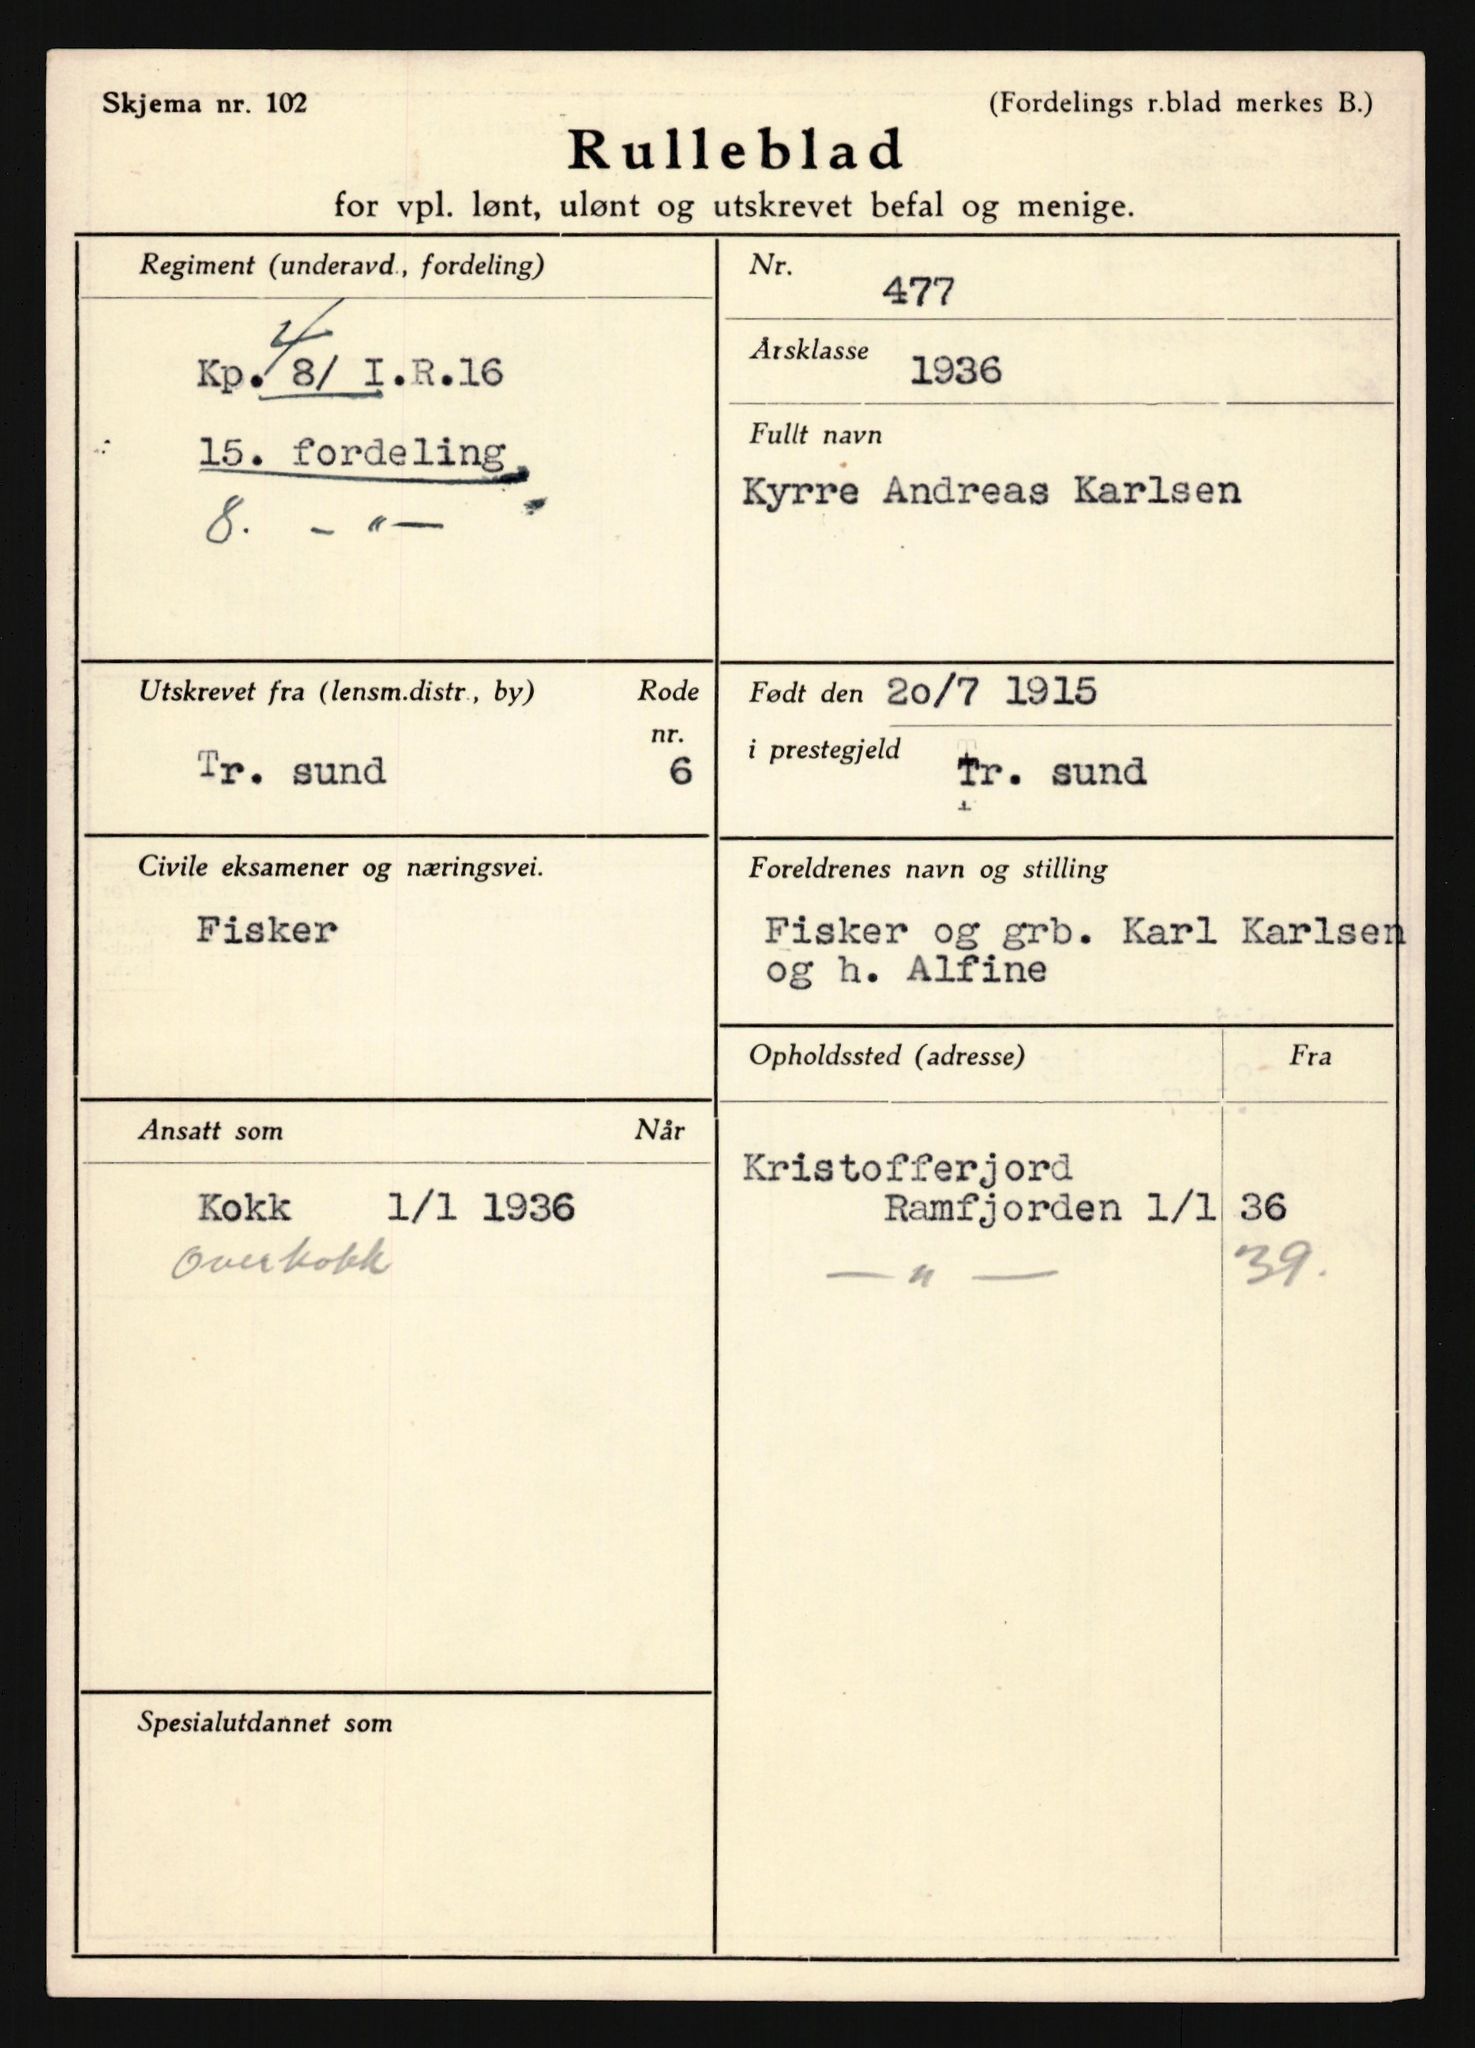 Skjema nr. 102
(Fordelings r.blad merkes B.)
Rulleblad
for vpl. lønt, ulønt og utskrevet befal og menige.
Regiment (underavd., fordeling)
4
Kp. 8/ I.R.16
15. fordeling
8. - " -
Nr.
477
Årsklasse
1936
Fullt navn
Kyrre Andreas Karlsen
Utskrevet fra (lensm.distr., by) Rode
nr.
Tr. sund 6
Født den 20/7 1915
i prestegjeld
Tr. sund
Civile eksamener og næringsvei.
Fisker
Foreldrenes navn og stilling
Fisker og grb. Karl Karlsen
og h. Alfine
Ansatt som Når
Kokk 1/1 1936
Overkokk
Opholdssted (adresse) Fra
Kristofferjord
Ramfjorden 1/1 36
— " — 39.
Spesialutdannet som